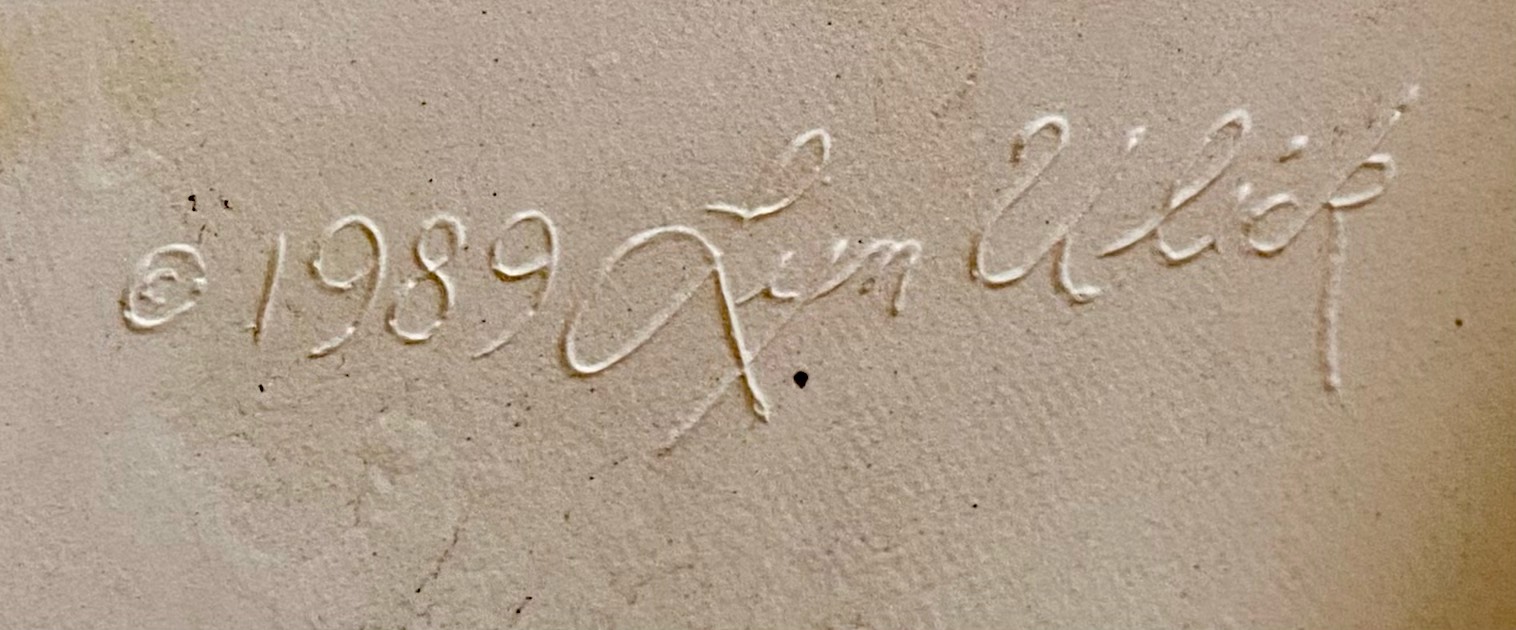 © 1989 Jim Ulick